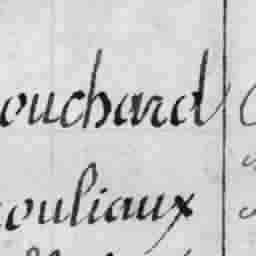 ouchard
ouliaux